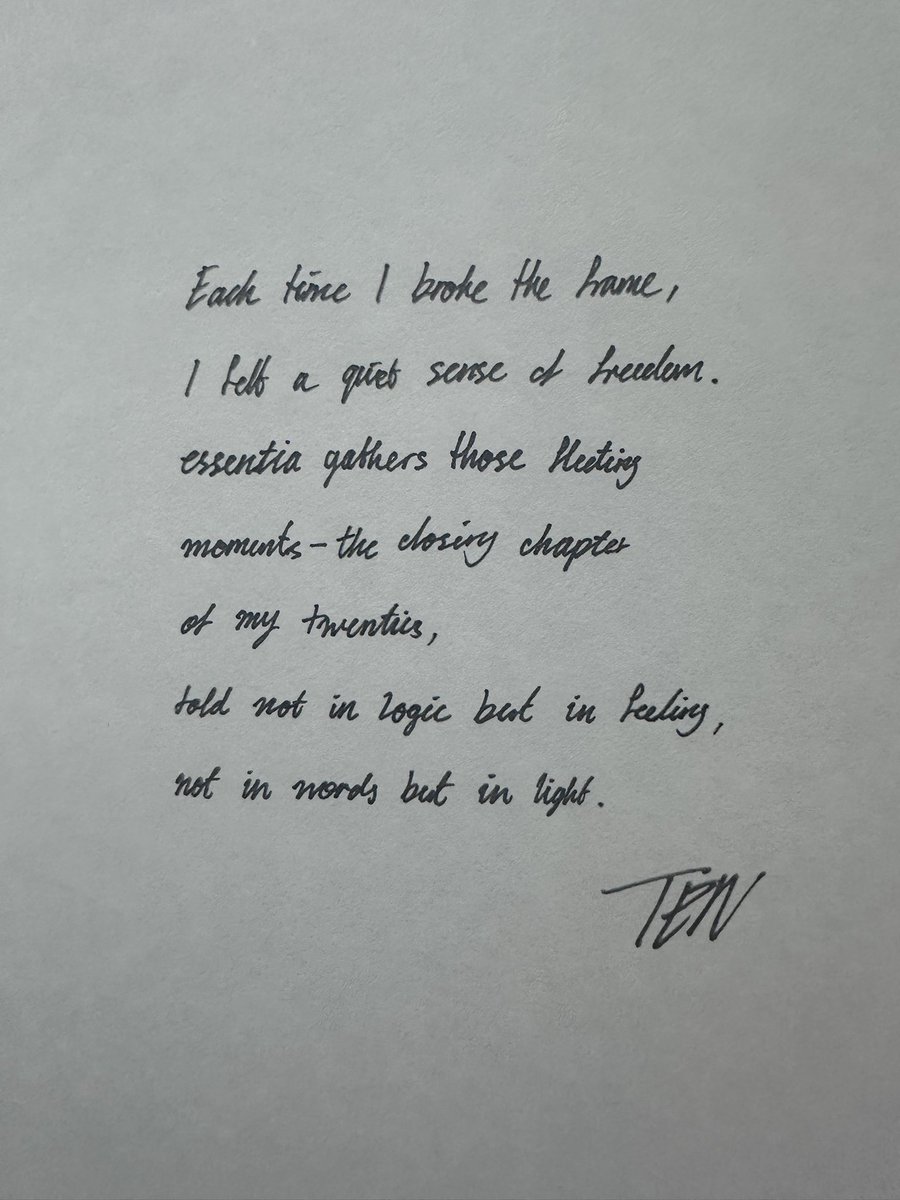 Each time I broke the frame,
I felt a quiet sense of freedom.
essentia gathers those fleeting
moments – the closing chapter
of my twenties,
told not in logic but in feeling,
not in words but in light.
TEN